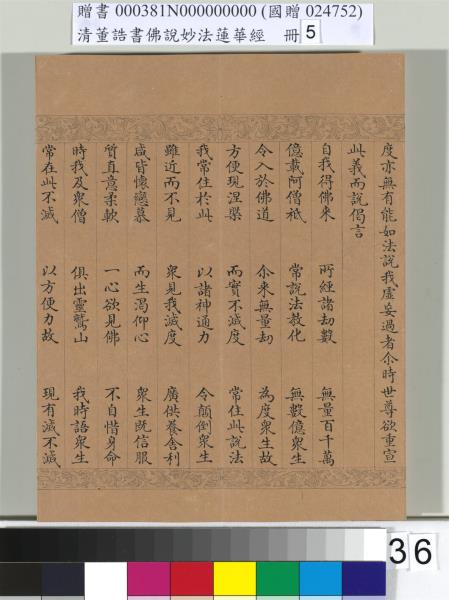 贈書 000381N000000000 (國贈 024752)
清董誥書佛說妙法蓮華經 冊 5
度亦無有能如法說我虛妄過者尒時世尊欲重宣
此義而說偈言
自我得佛來 所經諸劫數 無量百千萬
億載阿僧祇 常說法教化 無數億眾生
令入於佛道 尒來無量劫 為度眾生故
方便現涅槃 而實不滅度 常住此說法
我常住於此 以諸神通力 令顛倒眾生
雖近而不見 眾見我滅度 廣供養舍利
咸皆懷戀慕 而生渴仰心 眾生既信服
質直意柔軟 一心欲見佛 不自惜身命
時我及眾僧 俱出靈鷲山 我時語眾生
常在此不滅 以方便力故 現有滅不滅
36